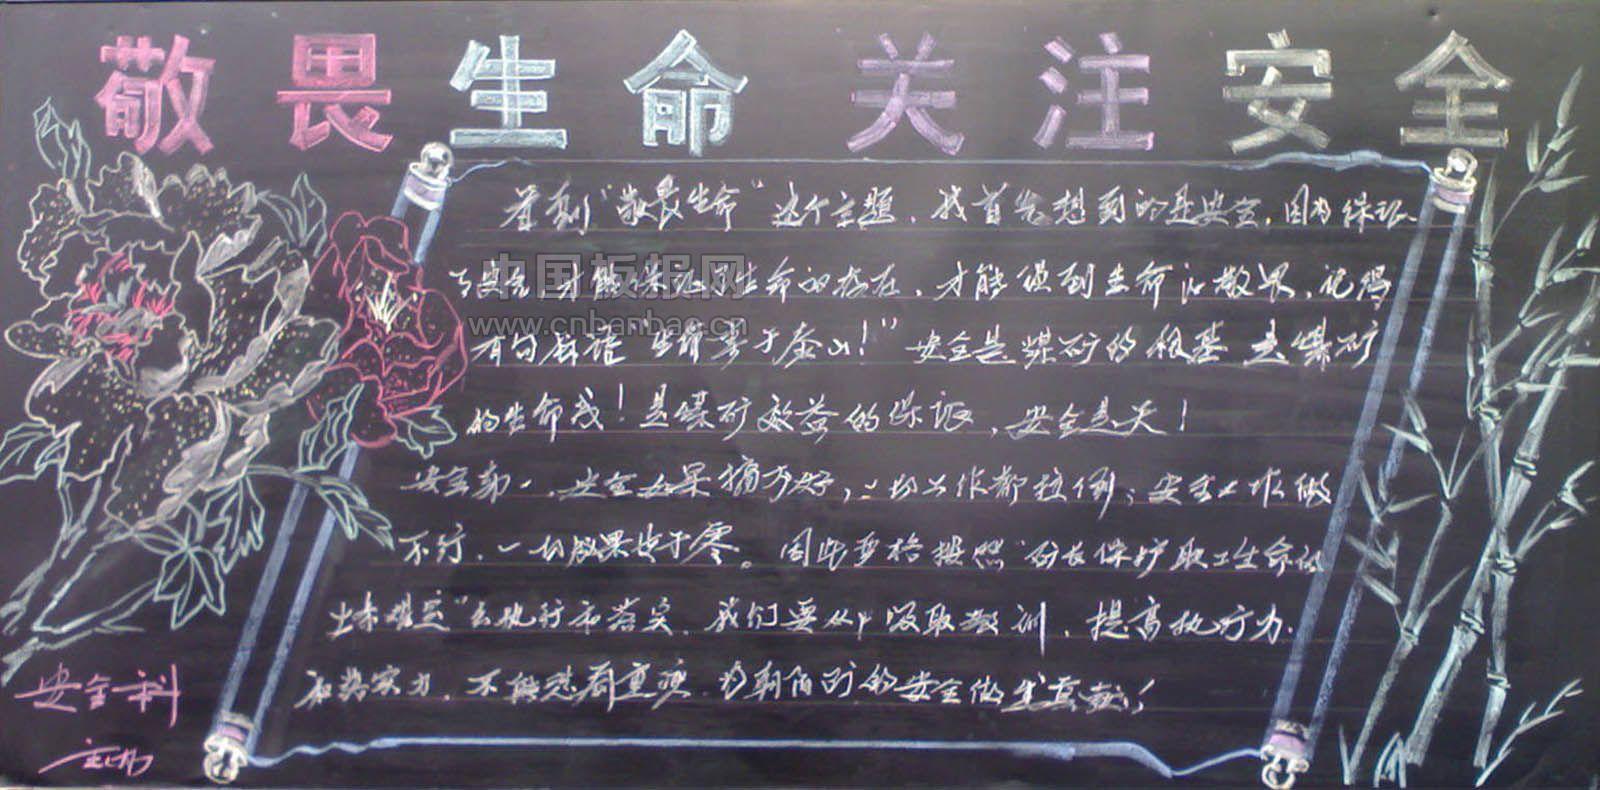 敬畏生命关注安全
看到“敬畏生命”这个主题，我首先想到的是安全，因为保证
了安全，才能保证了生命的存在，才能 到生命的敬畏，记得
中国板报网
www.cnbanbao.cn
有句 语“生命 于泰山！”安全是煤矿的根基 是煤矿
的生命线！是煤矿效益的保证，安全是天！
安全第一，安全如果搞不好，一切工作都 ；安全工作做
不好，一切成果 于零。因此严格按照“矿长保护职工生命的
七条规定”去执行和落实，我们要从中吸取教训，提高执行力，
和落实力，不能 ，为朝阳矿的安全做出贡献！
安全科
主办